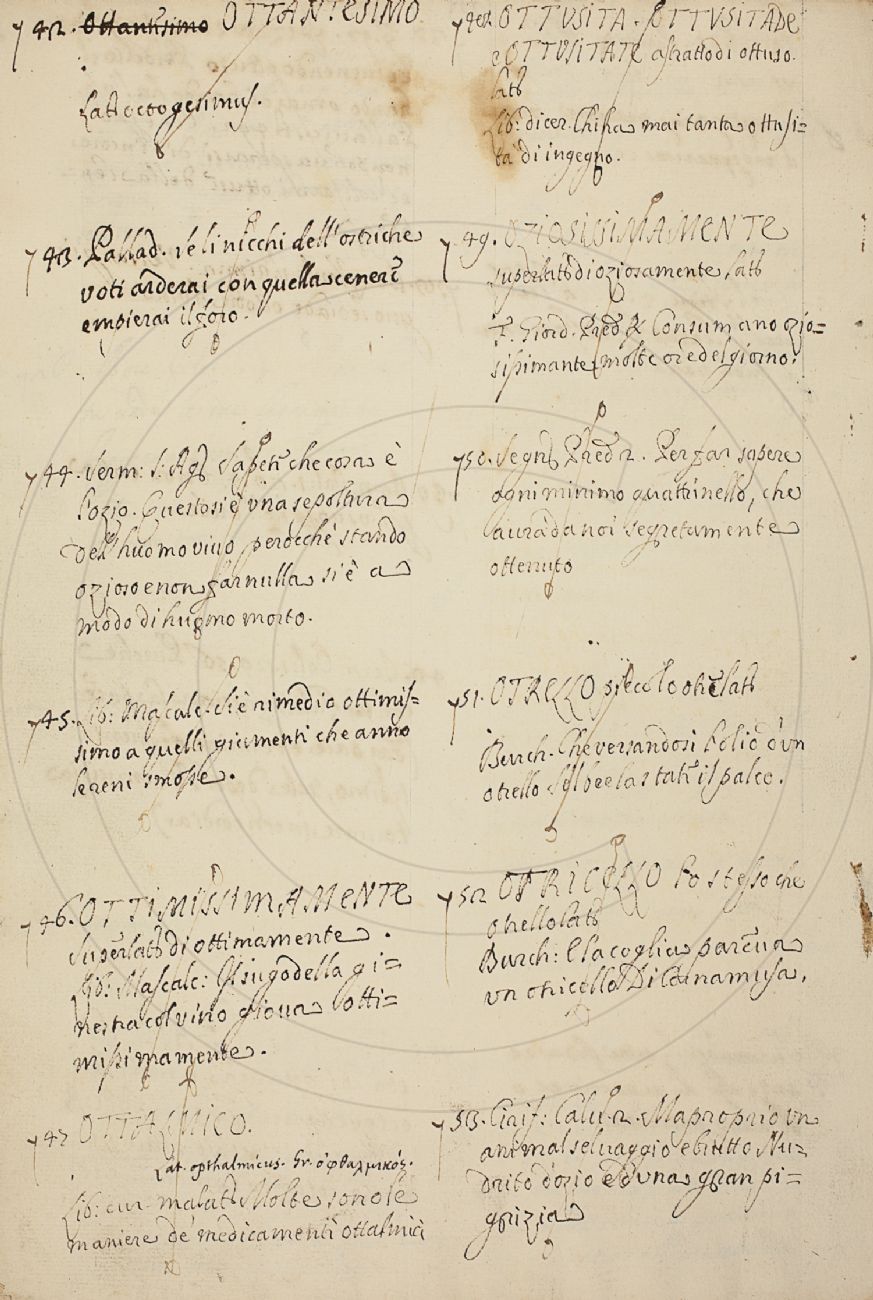 742. Ottantesimo OTTANTESIMO
Lat. octogesimus.
743. Pallad. se li nicchi dell'ostriche
voti arderai con quella cenere
empierai il foro.
744. Serm: S: Ag. Sapete che cosa è
l'ozio. Questo si è una sepoltura
dell'huomo vivo perocchè stando
ozioso e non far nulla si è a
modo di huomo morto.
745. Lib: Mascalc. Si è rimedio ottimis=
simo a quelli giumenti che anno
le reni smosse.
746. OTTIMISSIMAMENTE
Superlat. di ottimamente.
Lib: Mascalc: Il sugo della gi=
nestra col vino giova otti=
missimamente.
747 OTTALMICO.
Lat. opthalmicus. Gr. ὀφθαλμικός.
Lib: cur. malat. Molte sono le
maniere de' medicamenti ottalmici
748. OTTUSITA. OTTUSITADE
e OTTUSITATE astratto di ottuso.
Lat.
Lib: dicer. Chi ha mai tanta ottusi=
tà di ingegno.
749. OZIOSISSIMAMENTE
superlat. di oziosamente, Lat.
F. Giord. Pred. R. Consumano ozio=
sissimante molte ore del giorno.
750. Segn. Pred. 2. Per far sapere
ogni minimo quattrinello, che
aurà da noi segretamente
ottenuto
751. OTRELLO piccolo otre Lat.
Burch. Che versandosi l'olio d'un
otrello
752 OTRICELLO lo stesso che
otrello Lat.
Burch: E la coglia pareva
un otricello Di Cornamusa.
753. Ciriff: Calv. 2. Ma proprio un
animal seluaggio e brutto Nu=
drito d'ozio e d'una gran pi=
grizia